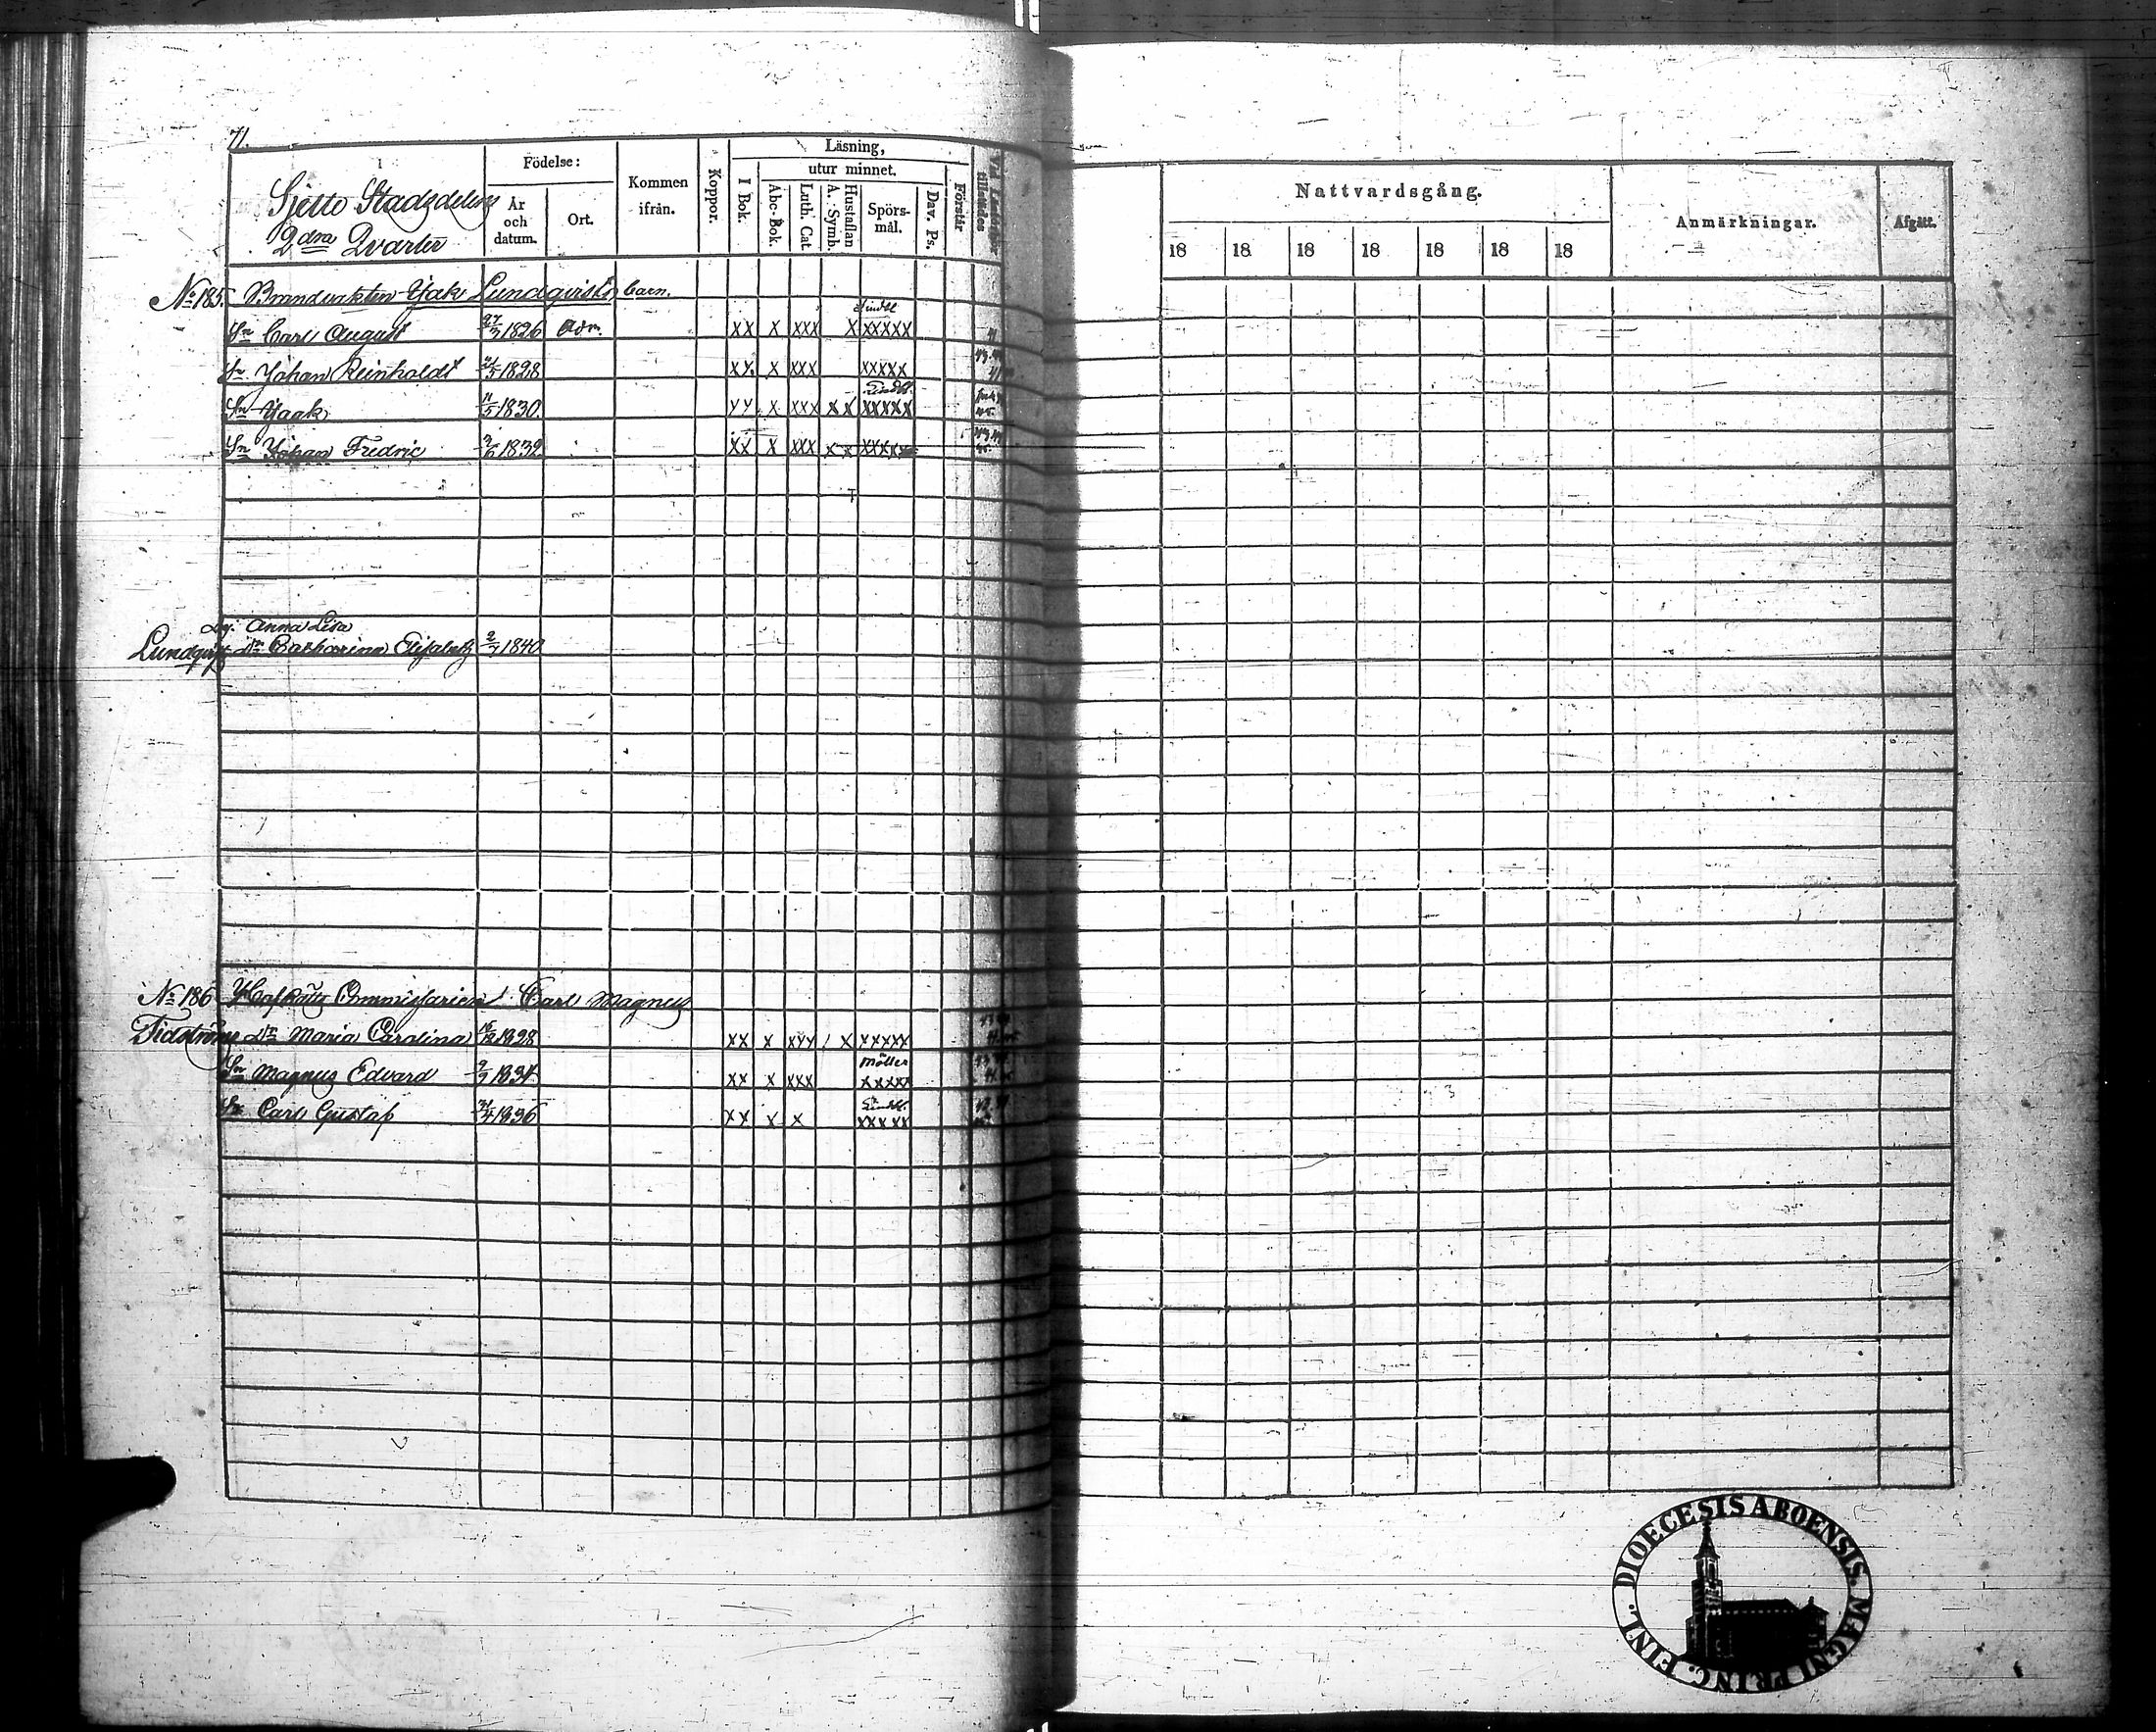 71.
Sjette Stadsdelens
2dra Qvarter
Födelse:
År och datum.
Ort.
Kommen ifrån.
Koppor.
Läsning,
I Bok.
utur minnet.
Abc-Bok.
Luth. Cat.
Hustaflan A. Symb.
Spörsmål.
Dav. Ps.
Förstår
Nattvardsgång.
18 18 18 18 18 18 18
Anmärkningar.
Afgått.
No 185 Brandvakten Isak Lundqvists barn.
Sn Carl August 27/3 1826 xx x xxx x xxxxx
Sn Johan Reinholdt 1828 xx x xxx xxxxx
Sn Isak 11/5 1830 xx x xxx xx xxxxx
Sn Johan Fredric 1832 xx x xxx xx xxxxx
Anna Lisa
Lundqvist Dr Catharina Elisabeth 2/7 1840
No 186 Hofrätts Commissarien Carl Magnus
Tidström Dr Maria Carolina 16/12 1828 xx x xxx x xxxxx
Möller
Sn Magnus Edvard 1834 xx x xxx xxxxx
Sn Carl Gustaf 1836 xx x x xxxxx
DIOECESIS ABOENSIS. MAGNI PRINC. FINL.